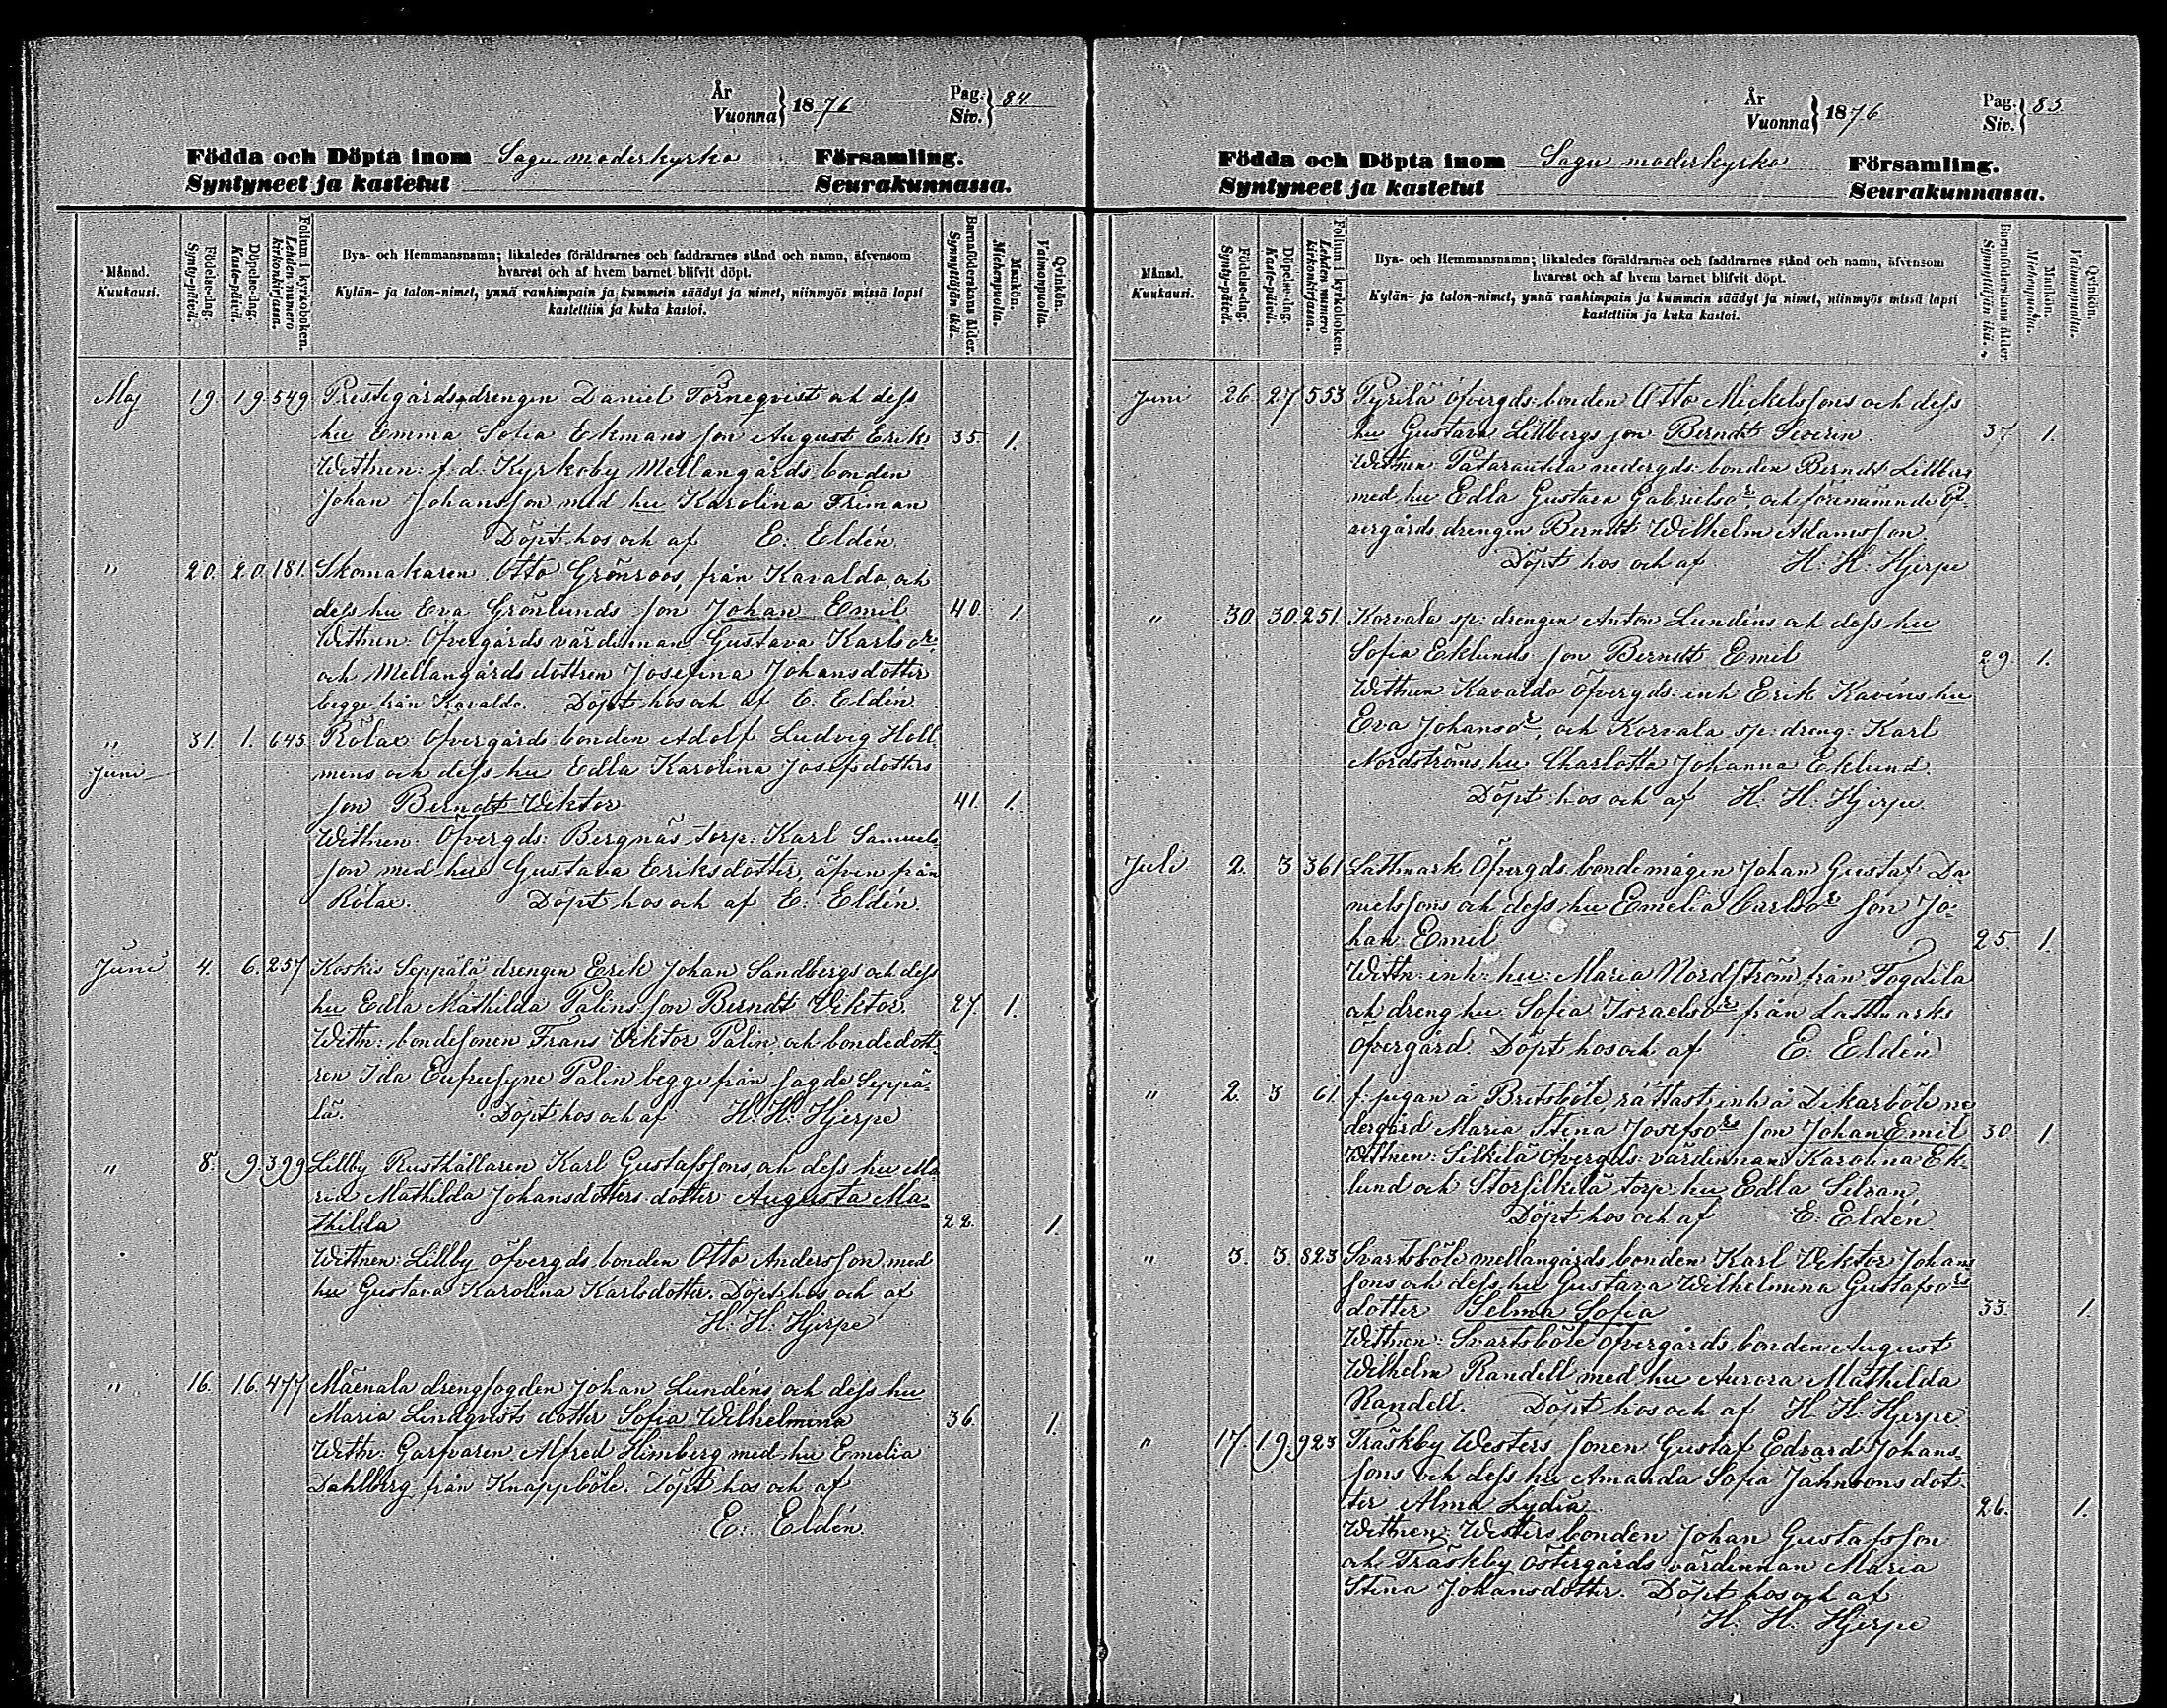 År
Vuonna } 1876 Pag. Siv. } 84
Födda och Döpta inom Sagu moderkyrko Församling.
Syntyneet ja kastetut Seurakunnassa.
Månad.
Kuukausi.
Födelse-dag.
Synty-päivä.
Döpelse-dag.
Kaste-päivä.
Folium i kyrkoboken.
Lehden numero kirkonkirjassa.
Bya- och Hemmansnamn; likaledes föräldrarnes och faddrarnes stånd och namn, äfvensom
hvarest och af hvem barnet blifvit döpt.
Kylän- ja talon-nimet, ynnä vanhimpain ja kummein säädyt ja nimet, niinmyös missä lapsi
kastettiin ja kuka kastoi.
Barnaföderskans ålder.
Synnyttäjän ikä.
Mankön.
Miehenpuolia.
Qvinkön.
Vaimonpuolia.
Maj 19 19. 549 Prestegårdsdrengen Daniel Törneqvist och dess
hu Emma Sofia Ekmans son August Erik 35. 1.
Wittnen: f. d. Kyrkoby Mellangårds bonden
Johan Johansson med hu Karolina Friman
Döpt hos och af E. Eldén.
" 20. 20. 181. Skomakaren Otto Grönroos, från Kavaldo, och
dess hu Eva Grönlunds son Johan Emil 40. 1.
Wittnen: Öfvergårds värdinnan Gustava Karlsor,
och Mellangårds dottren Josefina Johansdotter
begge från Kavaldo. Döpt hos och af E. Eldén
" 31. 1. 645 Rölax Öfvergårds bonden Adolf Ludvig Holl
Juni mens och dess hu Edla Karolina Josefsdotters
son Berndt Viktor 41. 1.
Wittnen: Öfvergds: Bergnäs torp: Karl Samuels
son med hu Gustava Eriksdotter, äfven från
Rölax. Döpt hos och af E. Eldén.
Juni 4. 6. 257 Koskis Seppälä drengen Erik Johan Sandbergs och dess
hu Edla Mathilda Palins son Berndt Viktor. 27. 1.
Wittn: bondesonen Frans Viktor Palin och bondedott
ren Ida Eufrusyne Palin begge från sagde Seppä
lä. Döpt hos och af H. H. Hjerpe
" 8. 9. 399 Lillby Rusthållaren Karl Gustafssons och dess hu Ma
ria Mathilda Johansdotters dotter Augusta Ma
thilda 22. 1.
Wittnen: Lillby öfvergds bonden Otto Andersson med
hu Gustava Karolina Karlsdotter. Döpt hos och af
H. H. Hjerpe
" 16. 16. 477 Mäenala drengfogden Johan Lundéns och dess hu
Maria Lindqvists dotter Sofia Wilhelmina 36. 1.
Wittn: Garfvaren Alfred Himberg med hu Emelia
Dahlberg från Knappböle. Döpt hos och af
E. Eldén.
År
Vuonna } 1876 Pag. Siv. } 85
Födda och Döpta inom Sagu moderkyrko Församling.
Syntyneet ja kastetut Seurakunnassa.
Månad.
Kuukausi.
Födelse-dag.
Synty-päivä.
Döpelse-dag.
Kaste-päivä.
Folium i kyrkoboken.
Lehden numero kirkonkirjassa.
Bya- och Hemmansnamn; likaledes föräldrarnes och faddrarnes stånd och namn, äfvensom
hvarest och af hvem barnet blifvit döpt.
Kylän- ja talon-nimet, ynnä vanhimpain ja kummein säädyt ja nimet, niinmyös missä lapsi
kastettiin ja kuka kastoi.
Barnaföderskans ålder.
Synnyttäjän ikä.
Mankön.
Miehenpuolia.
Qvinkön.
Vaimonpuolia.
Juni 26. 27 553 Pyrilä öfvergds: bonden Otto Mickelssons och dess
hu Gustava Lillbergs son Berndt Severin. 37 1.
Wittnen: Patarautila nedergds: bonden Berndt Lillberg
med hu Edla Gustava Gabrielsor, och förenämnde Öf
vergårds drengen Berndt Wilhelm Adamsson.
Döpt hos och af H. H. Hjerpe
" 30. 30 251. Korvala sp: drengen Anton Lundéns och dess hu
Sofia Eklunds son Berndt Emil 29. 1.
Wittnen Kavaldo Öfvergds: inh Erik Kavéns hu
Eva Johansor, och Korvala sp: dreng: Karl
Nordströms hu Charlotta Johanna Eklund.
Döpt hos och af H. H. Hjerpe
Juli 2. 3 361 Lattmark Öfvergds bondemågen Johan Gustaf Da
nielssons och dess hu Emelia Carlsor son Jo
han Emil 25 1.
Wittn: inh: hu: Maria Nordström från Fogdila
och dreng hu Sofia Israelsor från Lattmarks
Öfvergård. Döpt hos och af E. Eldén
" 2. 3 61. f. pigan å Britsböle, rättast inh å Dikarböle ne
dergård Maria Stina Josefsors son Johan Emil 30. 1.
Wittnen: Silkilä Öfvergds: värdinnan Karolina Ek
lund och Storsilkilä torp: hu Edla Silvan,
Döpt hos och af E. Eldén.
" 3. 3. 823 Svartsböle mellangårds bonden Karl Viktor Johans
sons och dess hu Gustava Wilhelmina Gustafsors
dotter Selma Sofia 33. 1.
Wittnen: Svartsböle öfvergårds bonden August
Wilhelm Randell med hu Aurora Mathilda
Randell. Döpt hos och af H. H. Hjerpe.
" 17. 19. 923 Träskby Westers sonen Gustaf Edvard Johans
sons och dess hu Amanda Sofia Jahnsons dot
ter Alma Lydia 26. 1.
Wittnen: Westers bonden Johan Gustafsson
och Träskby Östergårds värdinnan Maria
Stina Johansdotter. Döpt hos och af
H. H. Hjerpe